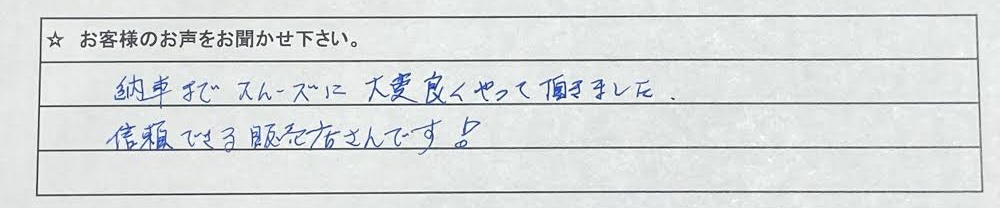 ☆ お客様のお声をお聞かせ下さい。
納車まで スムーズに 大変良くやって頂きました.
信頼できる販売店さんです!